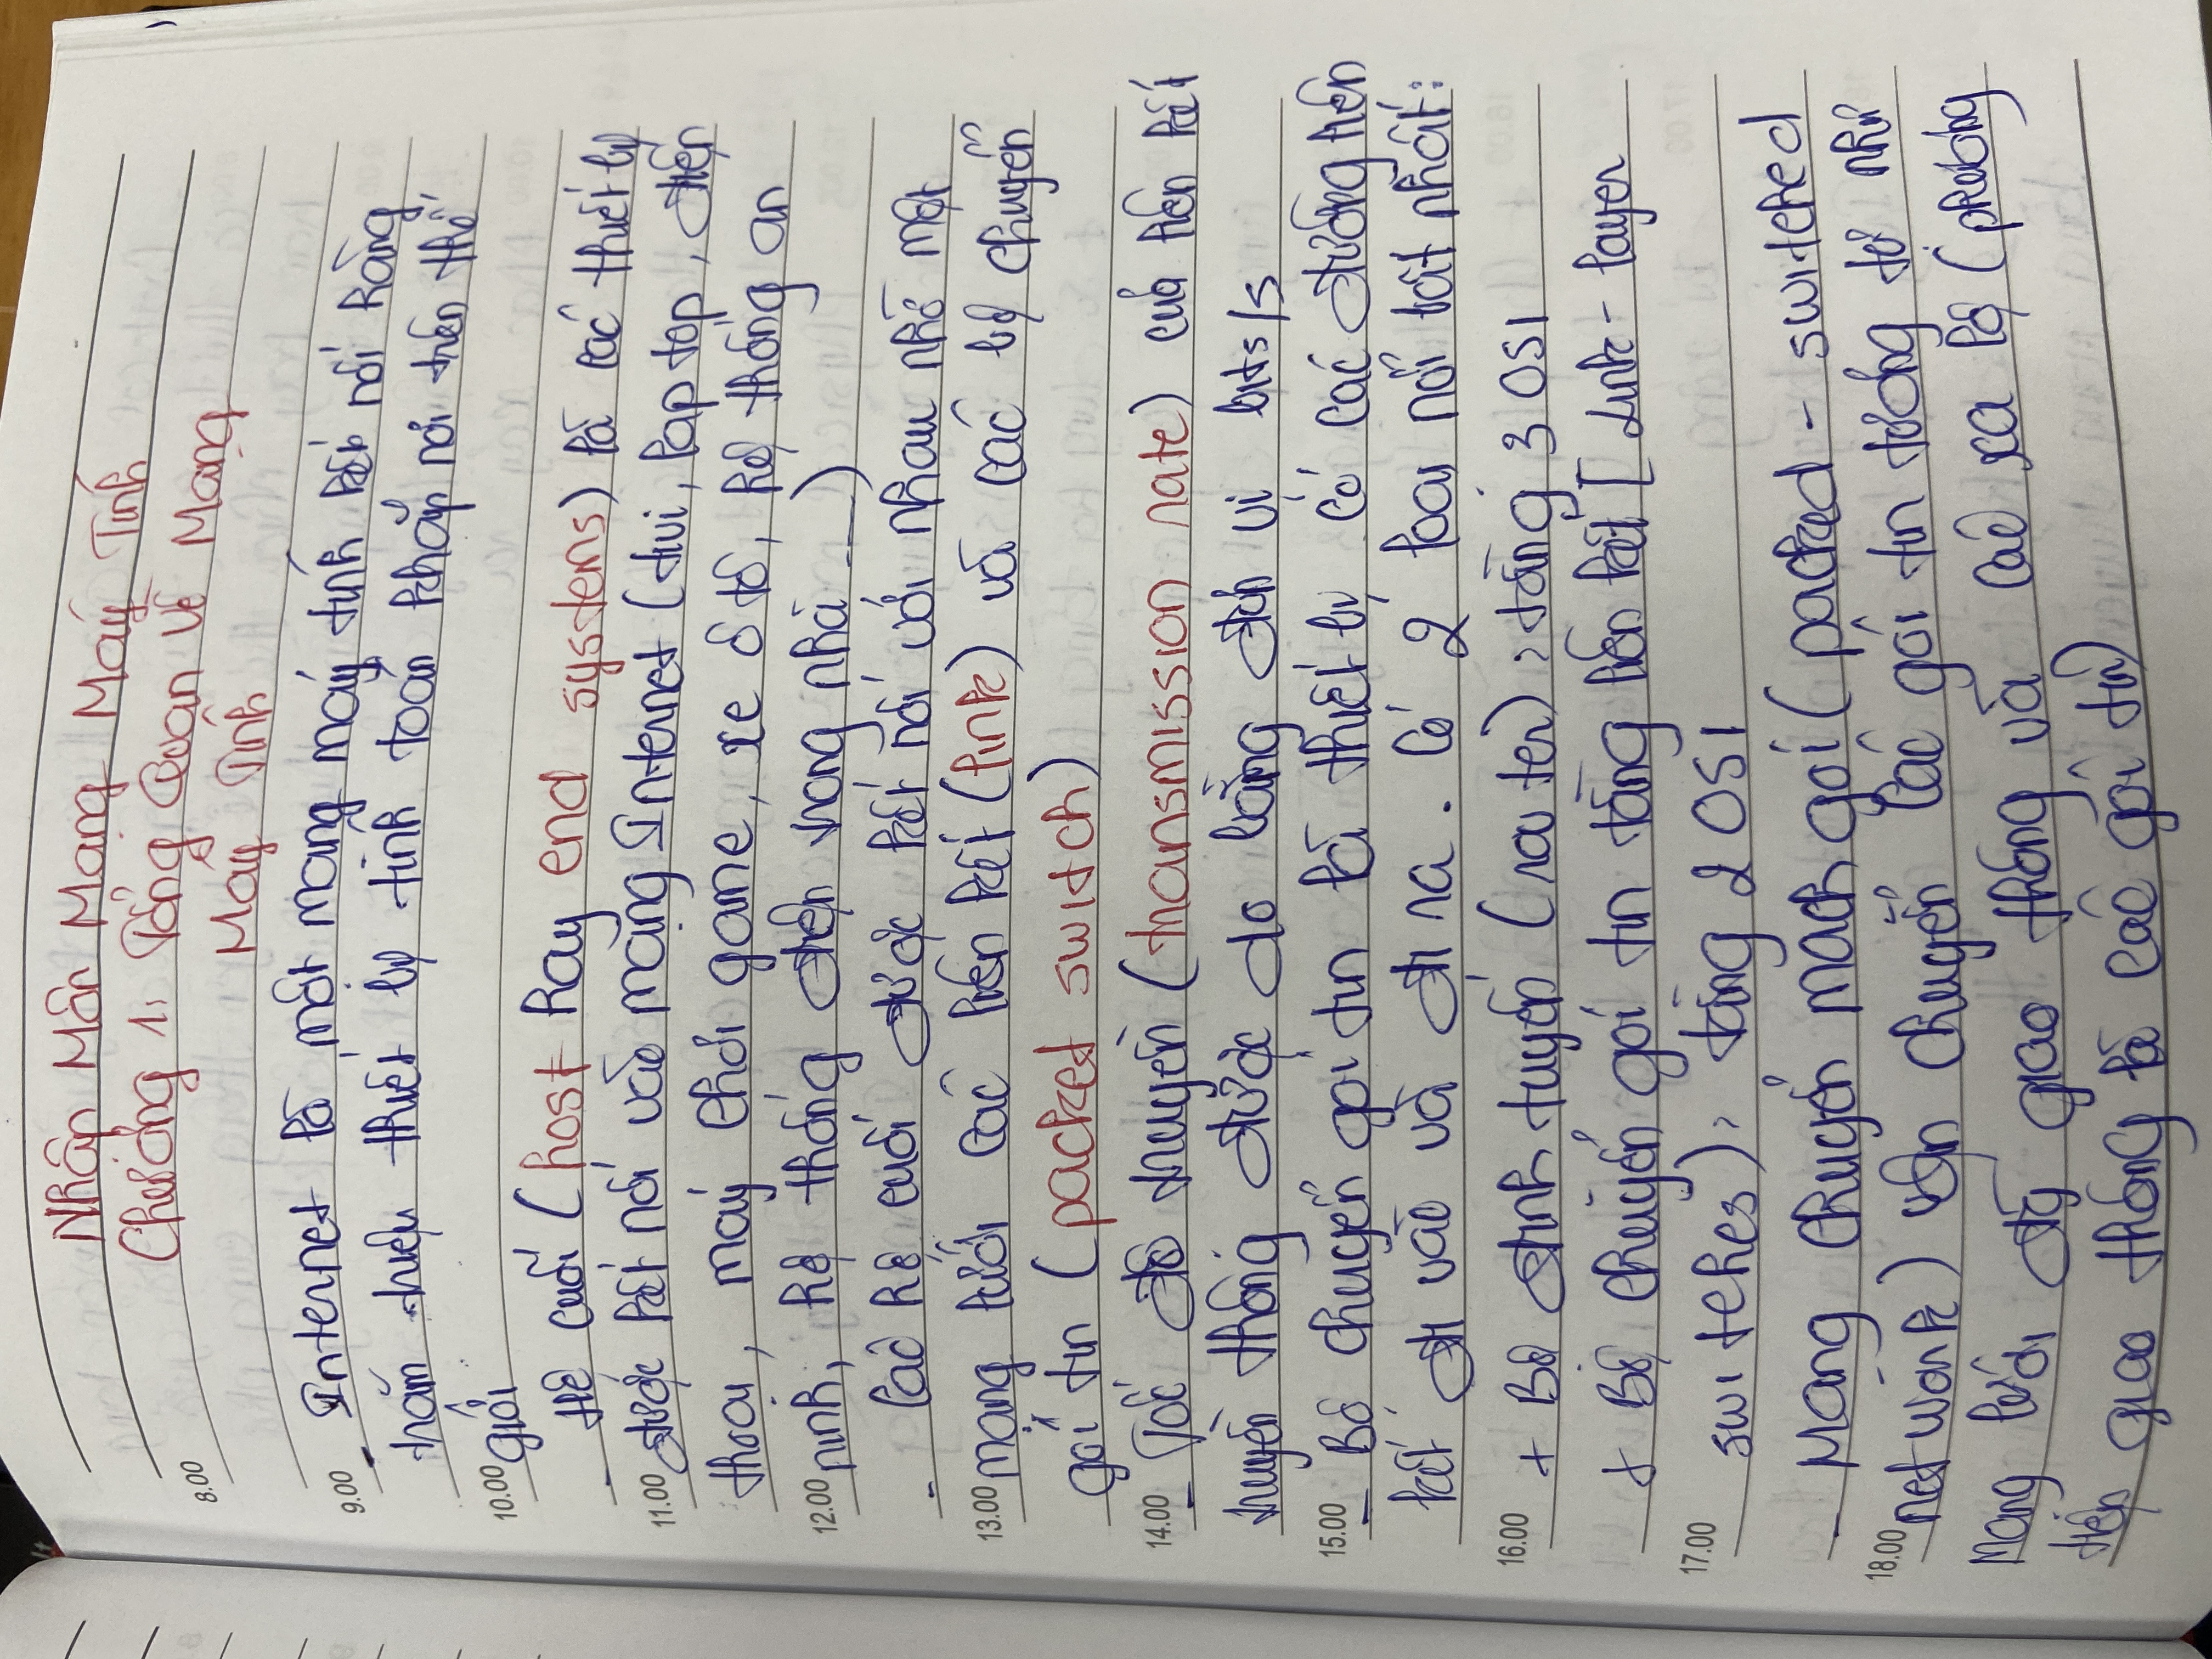 Nhập Môn Mạng Máy Tính
Chương 1: Tổng Quan Về Mạng
8.00
Máy Tính
9.00
- Internet là một mạng máy tính kết nối hàng
trăm triệu thiết bị tính toán khắp nơi trên thế
10.00
giới
- Hệ cuối (host hay end systems) là các thiết bị
11.00
được kết nối vào mạng Internet (tivi, laptop, điện
thoại, máy chơi game, xe ô tô, hệ thống an
12.00
ninh, hệ thống điện trong nhà ...)
- Các hệ cuối được kết nối với nhau nhờ một
13.00
mạng lưới các liên kết (link) và các bộ chuyển
gói tin (packet switch)
14.00
- Tốc độ truyền (transmission rate) của liên kết
truyền thông được đo bằng đơn vị bits/s
15.00
- Bộ chuyển gói tin là thiết bị có các đường liên
kết đi vào và đi ra. Có 2 loại nổi bật nhất:
16.00
+ Bộ định tuyến (router), tầng 3 OSI
+ Bộ chuyển gói tin tầng liên kết [Link-layer
17.00
switches), tầng 2 OSI
- Mạng chuyển mạch gói (packed - switched
18.00
network) vận chuyển các gói tin tương tự như
Mạng lưới đg giao thông và các xa lộ (phương
tiện giao thông là các gói tin)